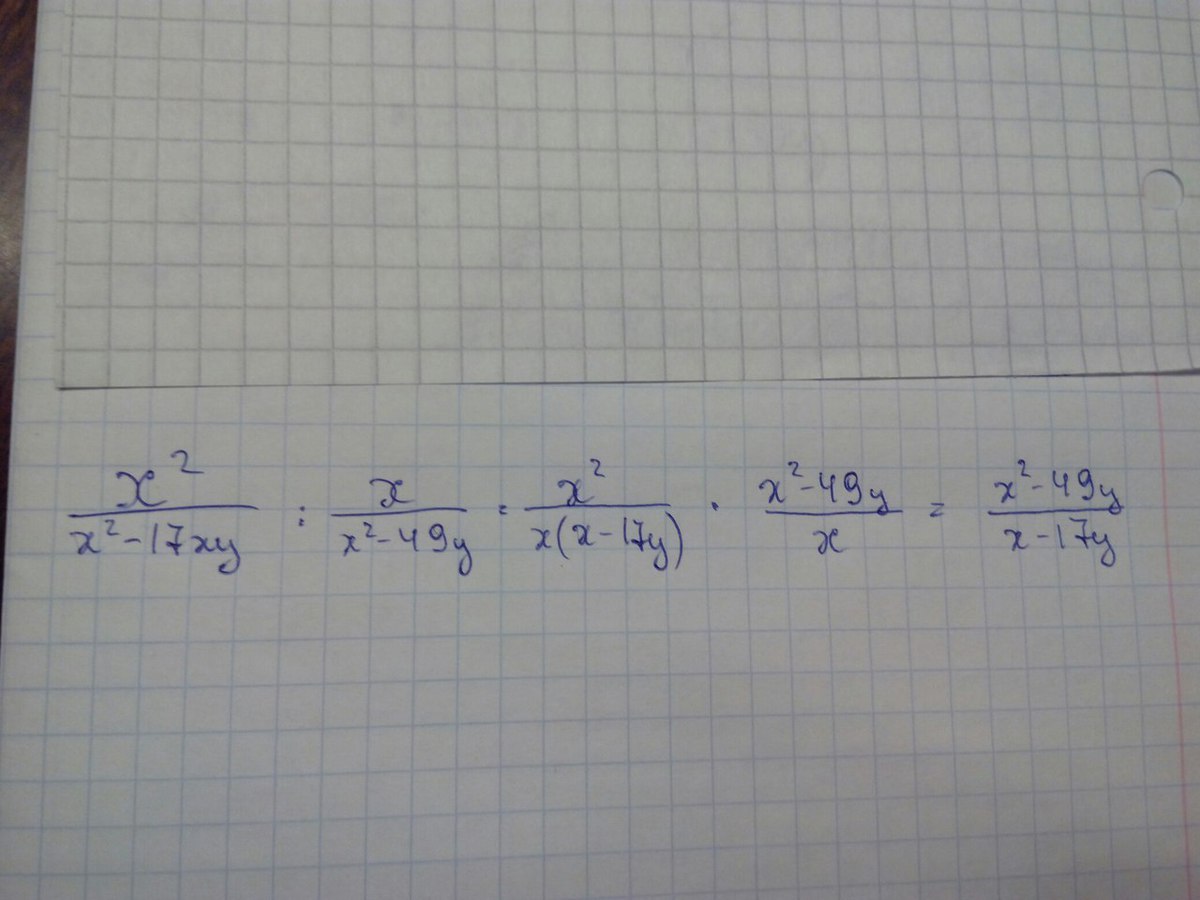 x²/(x²-17xy) : x/(x²-49y) = x²/(x(x-17y)) · (x²-49y)/x = (x²-49y)/(x-17y)